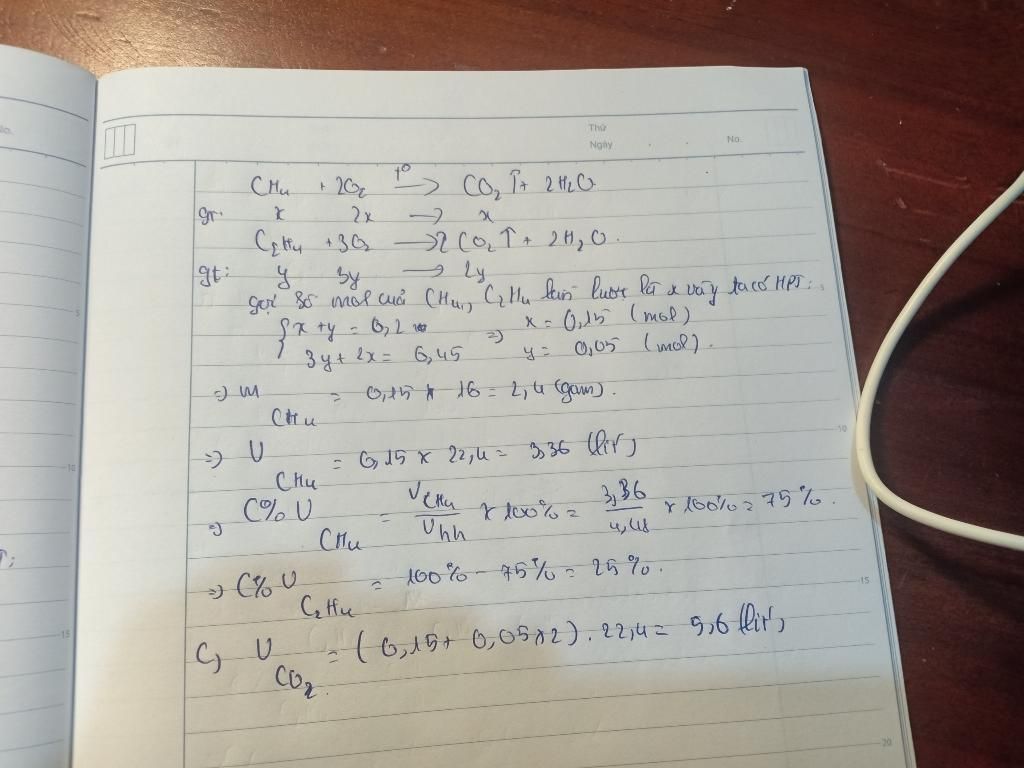 Thứ
Ngày
No.
CH4 + 2O2 t° → CO2↑ + 2H2O
gt: x 2x → x
C2H4 + 3O2 → 2CO2↑ + 2H2O.
gt: y 3y → 2y
gọi số mol của CH4, C2H4 lần lượt là x vày ta có HPT:
{ x + y = 0,2 ⇒ x = 0,15 (mol)
3y + 2x = 0,45 y = 0,05 (mol).
⇒ m CH4 = 0,15 x 16 = 2,4 (gam).
⇒ V CH4 = 0,15 x 22,4 = 3,36 (lít)
⇒ C% V CH4 = V CH4 / V hh x 100% = 3,36 / 4,48 x 100% = 75%.
⇒ C% V C2H4 = 100% - 75% = 25%.
C, V CO2 = (0,15 + 0,05 x 2) . 22,4 = 5,6 (lít)
5
10
15
20
No.
T;
5
10
15